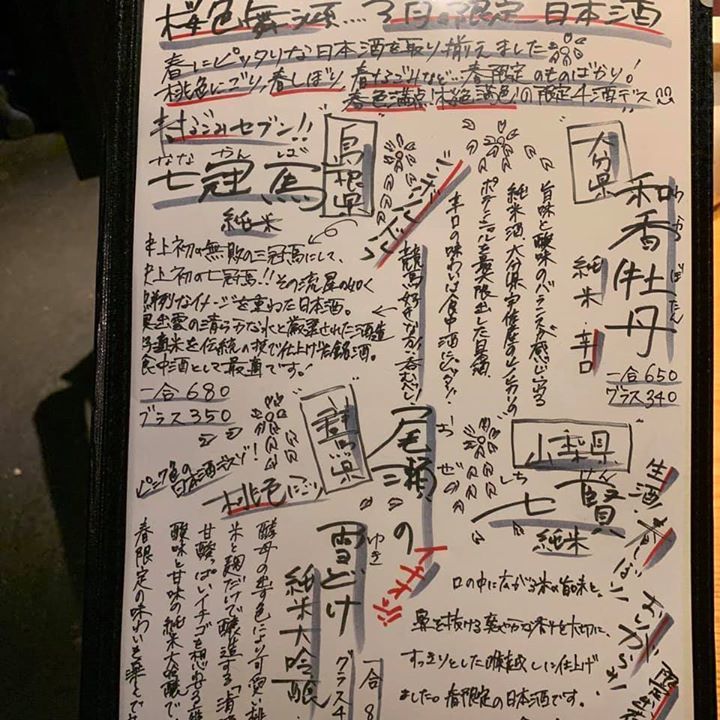 桜色舞う頃...3月の限定日本酒
春にピッタリな日本酒を取り揃えました
桃色にごり、春しぼり、春なごみなど…春限定のものばかり!
春色満点!桃絶満色!の限定4酒デス
セブン!!
島根県
なな かん ば
七冠馬
純米
史上初の無敗の三冠馬にして、
史上初の七冠馬!!その流星の如く
なイメージを重ねた日本酒。
奥出雲の清らかな水と厳選された酒造
好適米を伝統の技で仕上げた銘酒。
食中酒として最適です!
一合 680
グラス 350
大分県
わ かお ぼ たん
和香牡丹
純米・辛口
旨味と酸味のバランスが感じられる
純米酒。大分県宇佐産のヒノヒカリの
ポテンシャルを最大限出した日本酒。
辛口の味わいは食中酒にピッタリ!
一合 650
グラス 340
群馬県
ピンク色の日本酒デス!
桃色にごり
お ぜ
尾瀬の
ゆき
雪どけ
純米大吟醸
酵母の出す色により可愛い桃
米と麹だけで醸造する「清酒
甘酸っぱいイチゴを想わせる
酸味と甘味の純米大吟醸で
春限定の味わいを楽しんで
一合 8
グラス 4
山梨県
しち けん
七賢
純米
生酒・春しぼり
口の中に広がる米の旨味と、
鼻を抜ける爽やかな香りを大切に、
すっきりとした喉越しに仕上げ
ました。春限定の日本酒です。